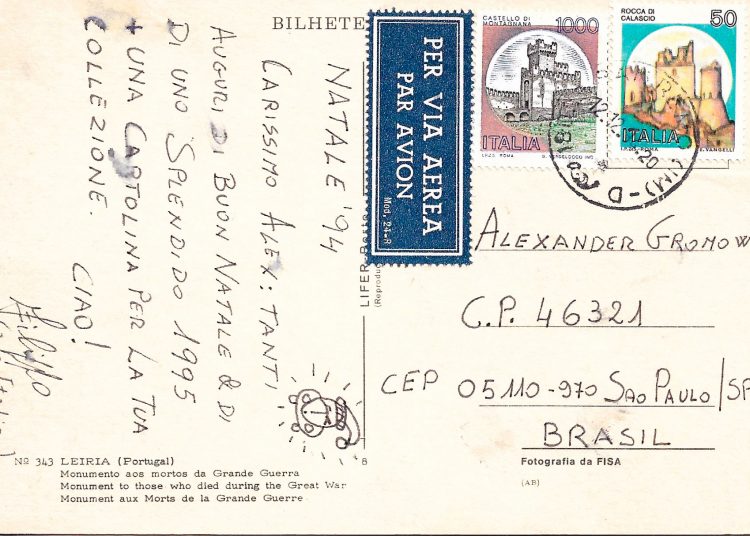 BILHETE
NATALE '94
CARISSIMO ALEX: TANTI
AUGURI DI BUON NATALE & DI
DI UNO SPLENDIDO 1995
+ UNA CARTOLINA PER LA TUA
COLLEZIONE.
CIAO!
Filippo
Nº 343 LEIRIA (Portugal)
Monumento aos mortos da Grande Guerra
Monument to those who died during the Great War
Monument aux Morts de la Grande Guerre
LIFER
(Reproduç
8
PER VIA AEREA
PAR AVION
Mod. 24-R
CASTELLO DI
MONTAGNANA
1000
ITALIA
I.P.Z.S. ROMA
ROCCA DI
CALASCIO
50
ITALIA
I.P.Z.S. ROMA E. VANGELLI
12.12
20
(MI)-D
ALEXANDER GROMOW
C.P. 46321
CEP 05110-970 SAO PAULO/SP
BRASIL
Fotografia da FISA
(AB)